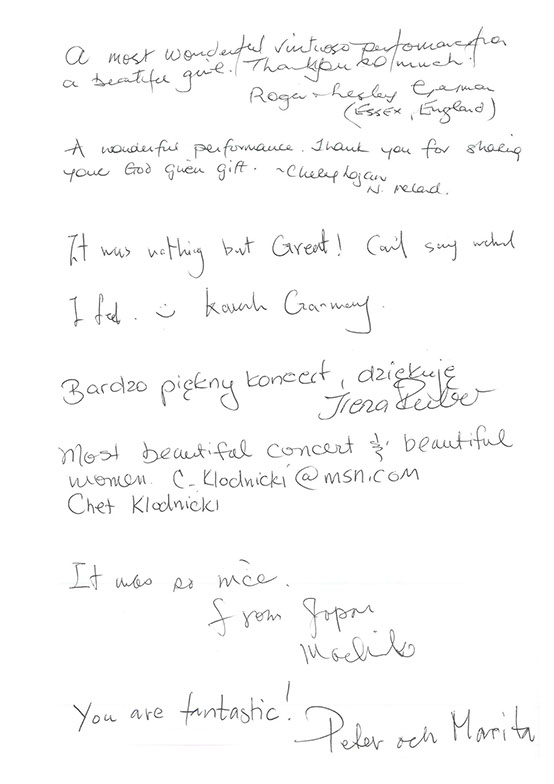 A most wonderful virtuoso perfomance from
a beatiful girl! Thankyou so much!
Roger & Lesley
(Essex, England)
A wonderful performance. Thank you for sharing
your God given gift. ~Cheryl Logan
N. Ireland.
It was nothing but Great! Can't say what
I feel. :) Germany.
Bardzo piękny koncert, dziękuję
Irena
Most beautiful concert & beautiful
women. C_Klodnicki@msn.com
Chet Klodnicki
It was so nice.
from Japan
You are fantastic!
Peter och Marita